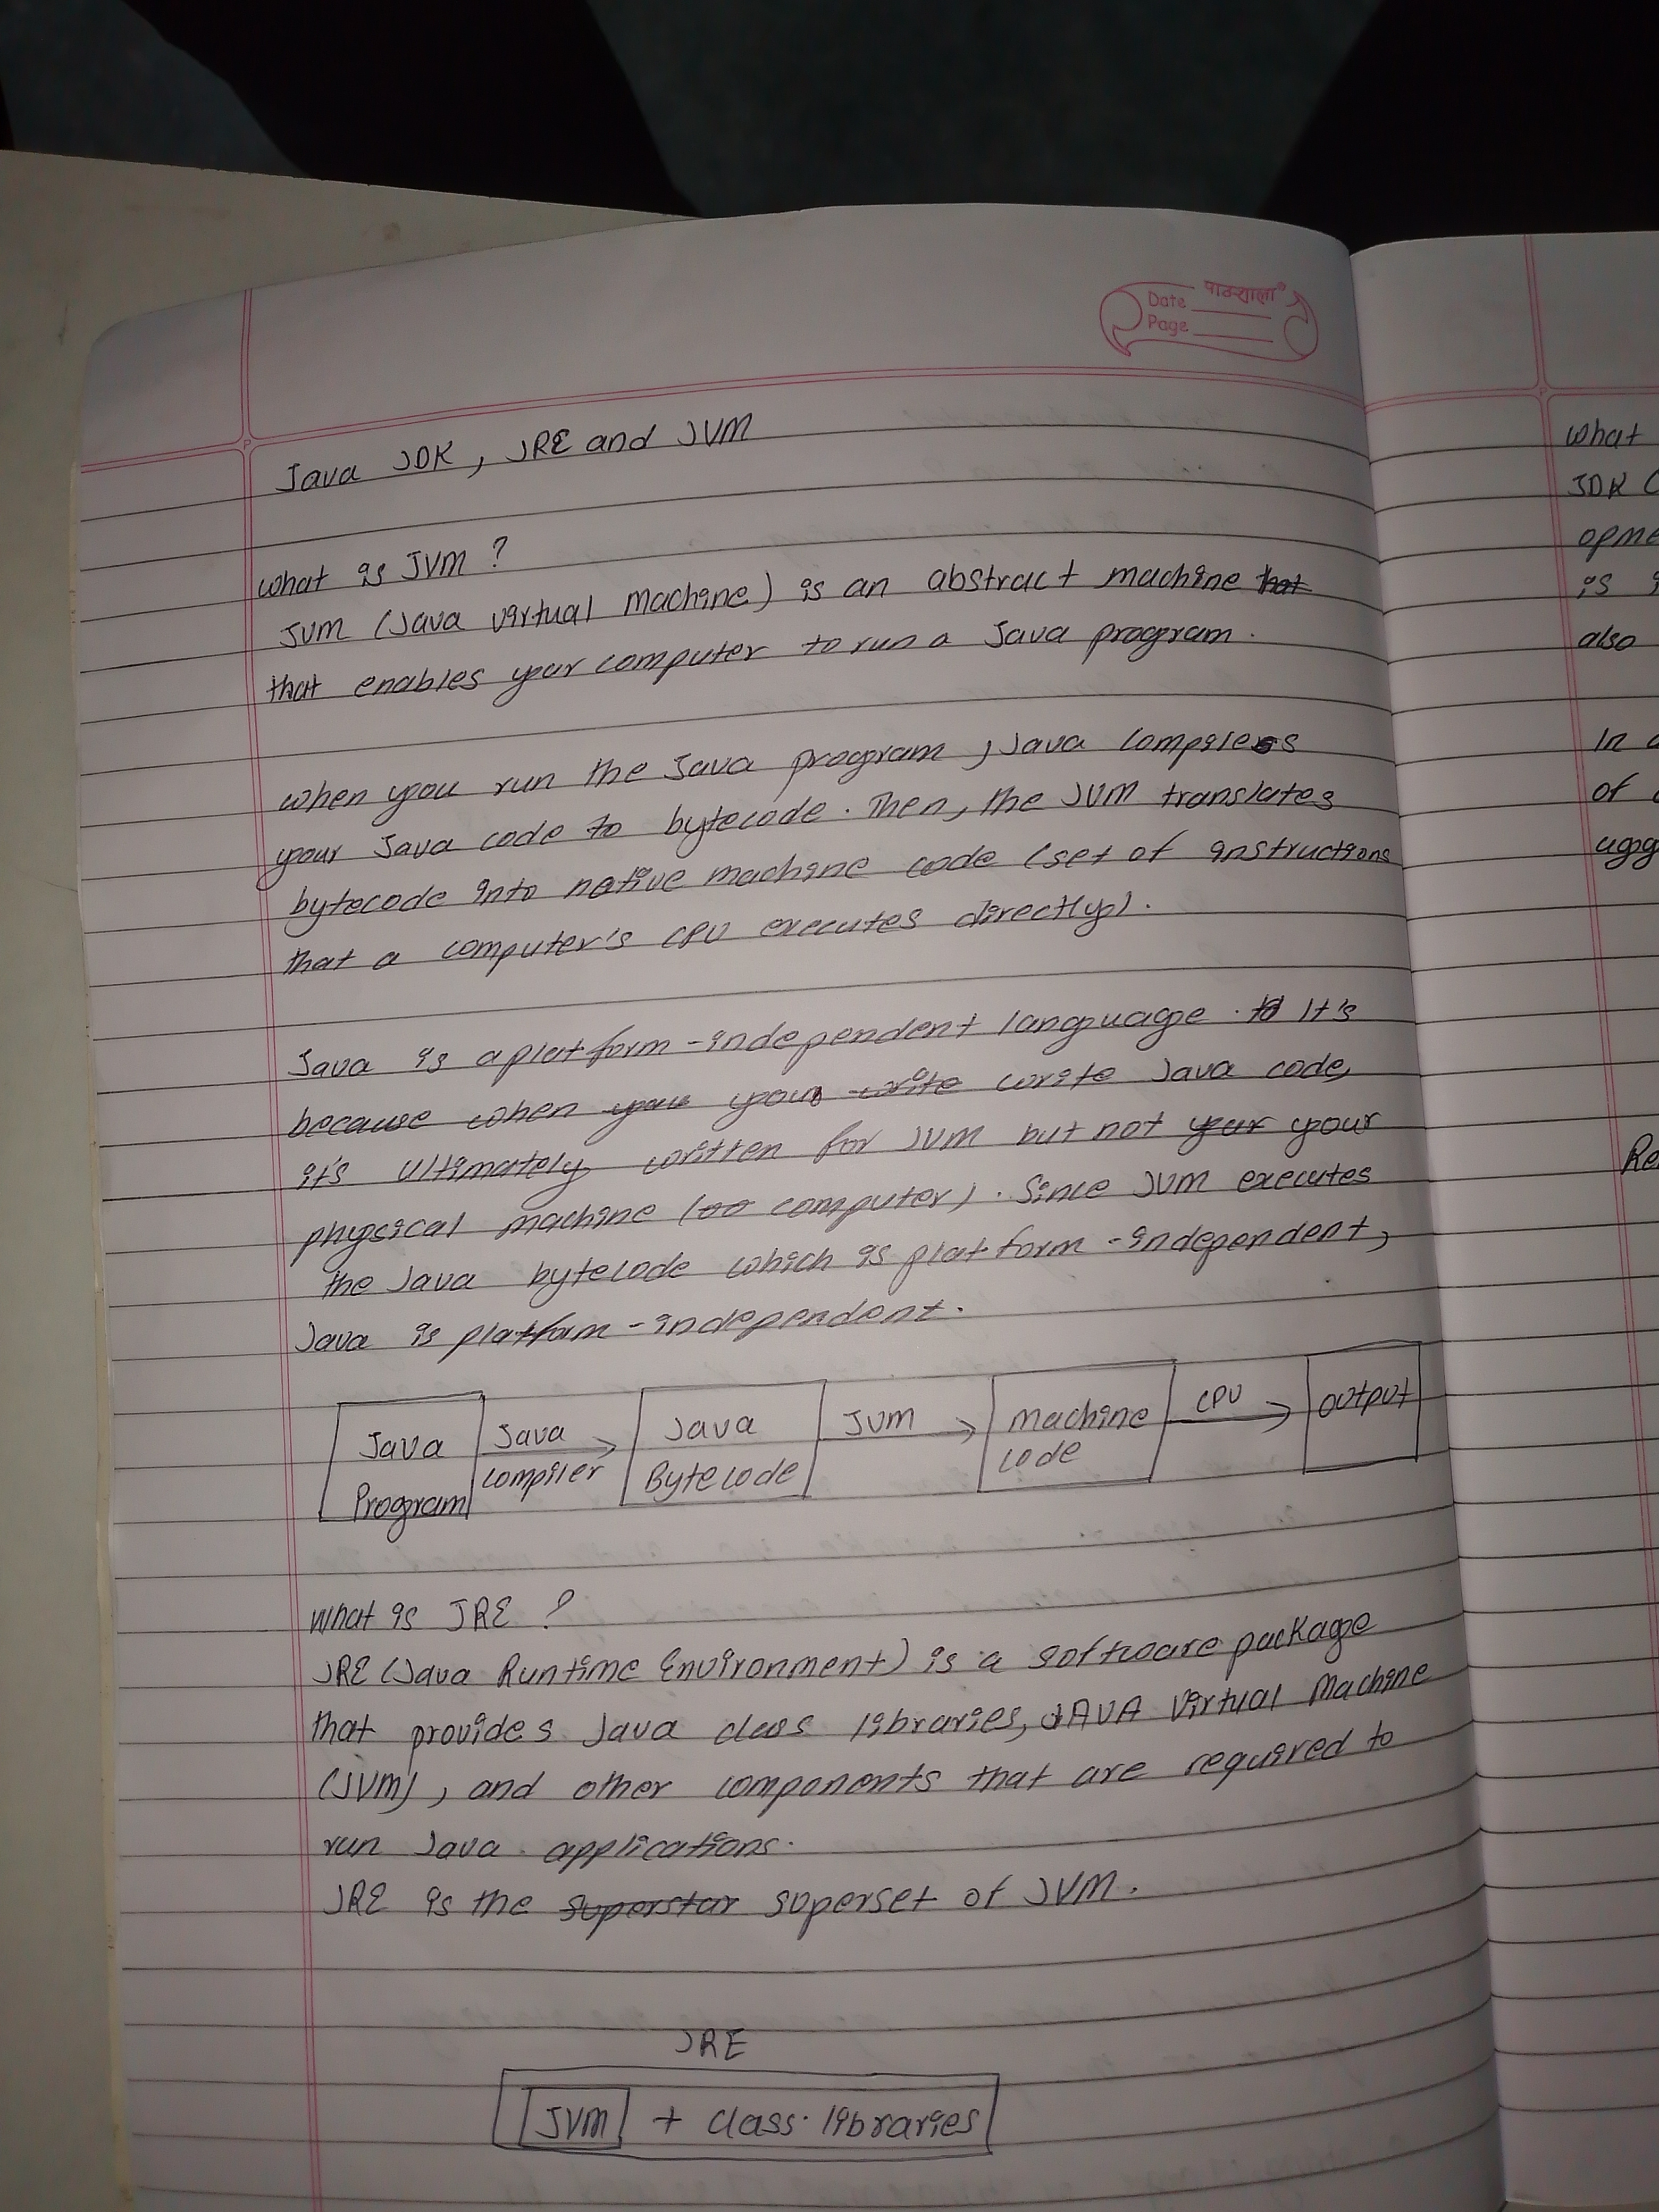 पाठशाला
Date
Page
Java JDK, JRE and JVM
What is JVM ?
JVM (Java virtual Machine) is an abstract machine that
that enables your computer to run a Java program.
when you run the Java program, Java compiles
your Java code to bytecode. Then, the JVM translates
bytecode into native machine code (set of instructions
that a computer's CPU executes directly).
Java is a platform-independent language. It's
because when you you write write Java code,
it's ultimately written for JVM but not your your
physical machine (computer). Since JVM executes
the Java bytecode which is platform-independent,
Java is platform-independent.
Java Program
Java compiler
Java Bytecode
JVM
machine code
CPU
output
What is JRE ?
JRE (Java Runtime Environment) is a software package
that provides Java class libraries, JAVA Virtual Machine
(JVM), and other components that are required to
run Java applications.
JRE is the superstar superset of JVM.
JRE
JVM + class libraries
what
JDK (
opme
is i
also
In
of
Re